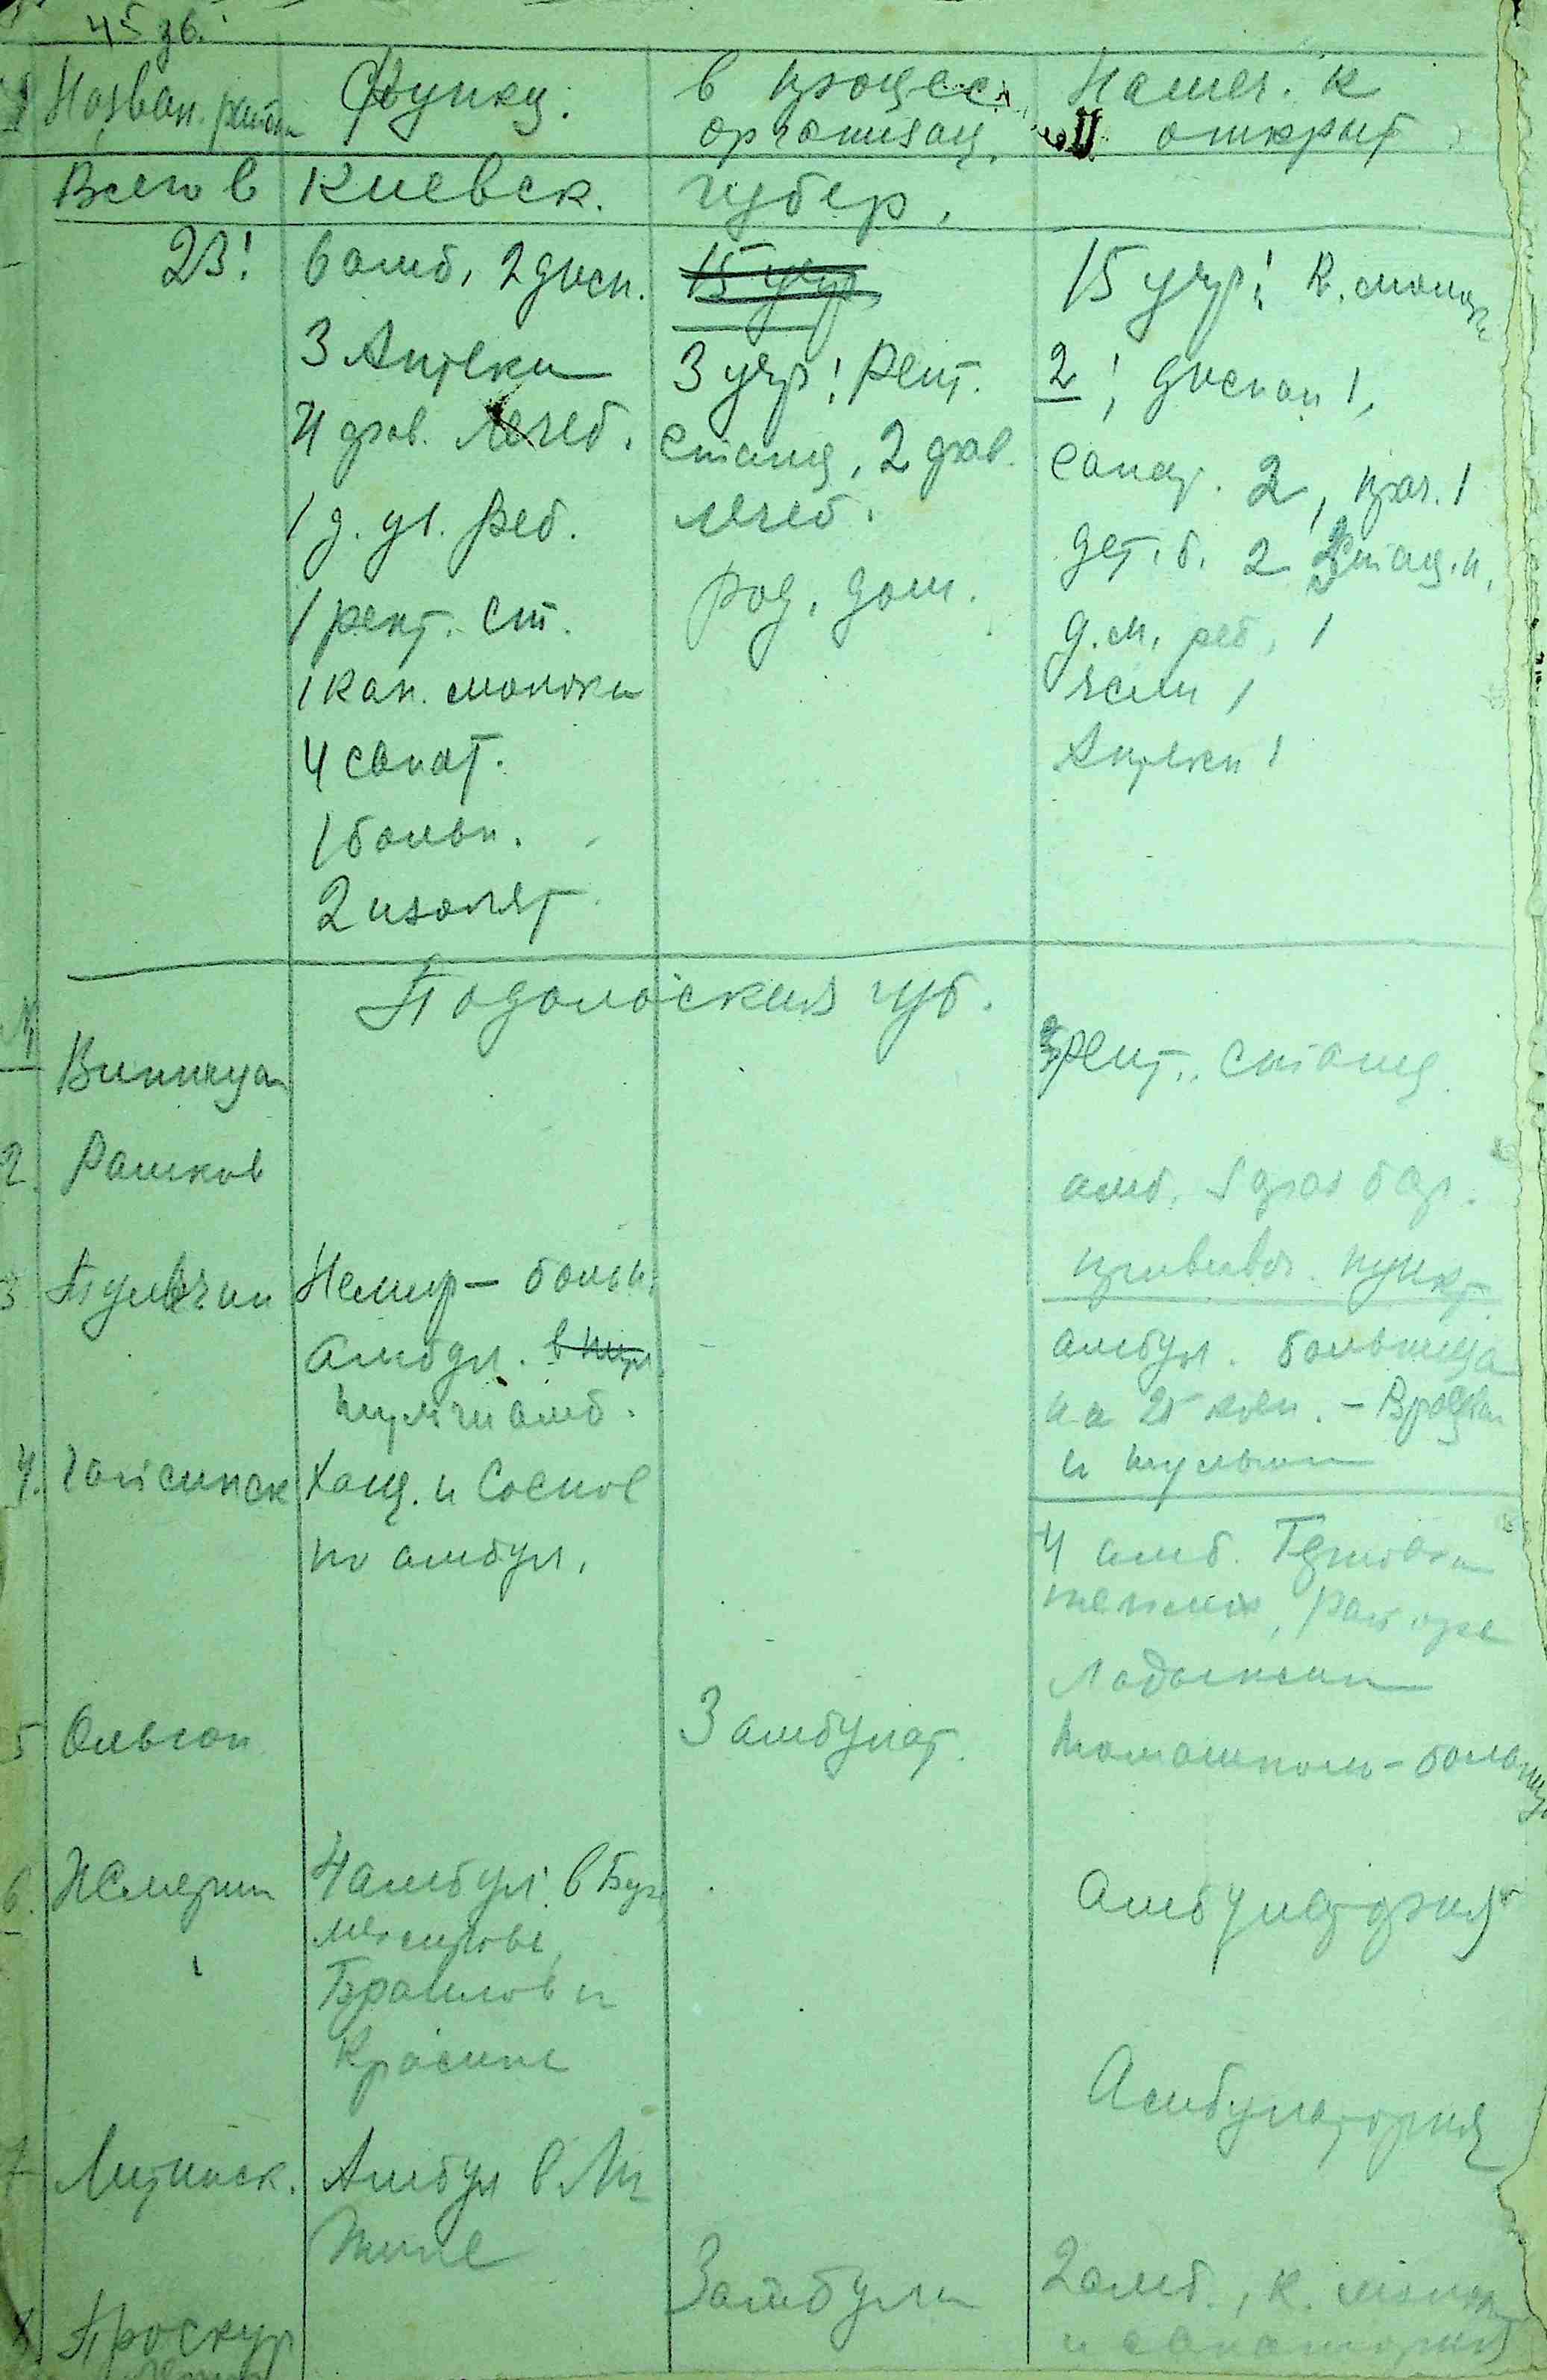 45 зв.
Назван. района
Функц.
в процес. организац.
Намеч. к открыт
Всего в Киевск. губер.
23!
6 амб, 2 дисп.
3 Аптеки
4 фав. лечеб.
1 д. гл. реб.
1 рент. ст.
1 кап. молока
4 санат.
1 больн.
2 изолят.
15 учр.
3 учр! Рент.
станц, 2 фав.
лечеб.
род. дом.
15 учр! К. молока
2! диспан 1,
санат. 2, прач. 1
дет. б. 2
д. м. реб, 1
ясли 1
Аптеки 1
Подольская губ.
1
Винница
рент. станц.
2. Рашков
амб.
прививоч. пункт
3 Тульчин
Немир - больн.
амбул.
Тульчин амб.
амбул. больница
на 25 коек. -
и Тульчин
4. Гайсинск
Хащ. и Соснов
по амбул.
4 амб. Терновка
Теплик,
Ладыжин
5 Ольгоп
3 амбулат.
Томашполь - больница
6. Жмерин
4 амбул! в
Браилов и
Красном
Амбулатория
7 Литинск.
Амбул в Ли
тине
Амбулатория
8 Проскур
3 амбула
2 амб., к. молока
и санатория